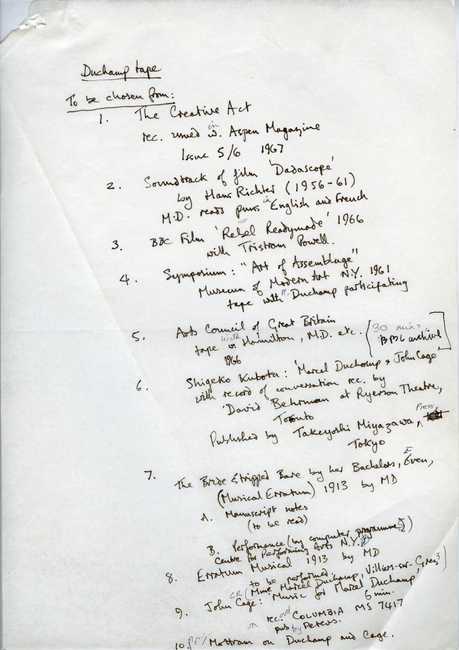 Duchamp tape
To be chosen from:
1. The Creative Act
rec. issued in Aspen Magazine
Issue 5/6 1967
2. Soundtrack of film 'Dadascope'
by Hans Richter (1956-61)
M.D. reads puns in English and French
3. BBC Film 'Rebel Readymade' 1966
with Tristram Powell.
4. Symposium: "Art of Assemblage"
Museum of Modern Art N.Y. 1961
tape with Duchamp participating
5. Arts Council of Great Britain
tape with Hamilton, M.D. etc. [30 mins
1966 archive]
6. Shigeko Kubota: 'Marcel Duchamp & John Cage'
with record of conversation rec. by
David Behrman at Ryerson Theatre,
Toronto
Published by Takeyoshi Miyazawa, Press,
Tokyo
7. The Bride Stripped Bare by her Bachelors, Even,
(Musical Erratum) 1913 by MD
A. Manuscript notes
(to be read)
B. Performance (by computer programme)
Centre for Performing Arts N.Y.
8. Erratum Musical 1913 by MD
to be performed
(Mme Marcel Duchamp, Villiers-sur-Grez)
9. John Cage: Music for Marcel Duchamp,
6 min.
rec. COLUMBIA MS 7417
pub by Peters.
10 Mottram on Duchamp and Cage.